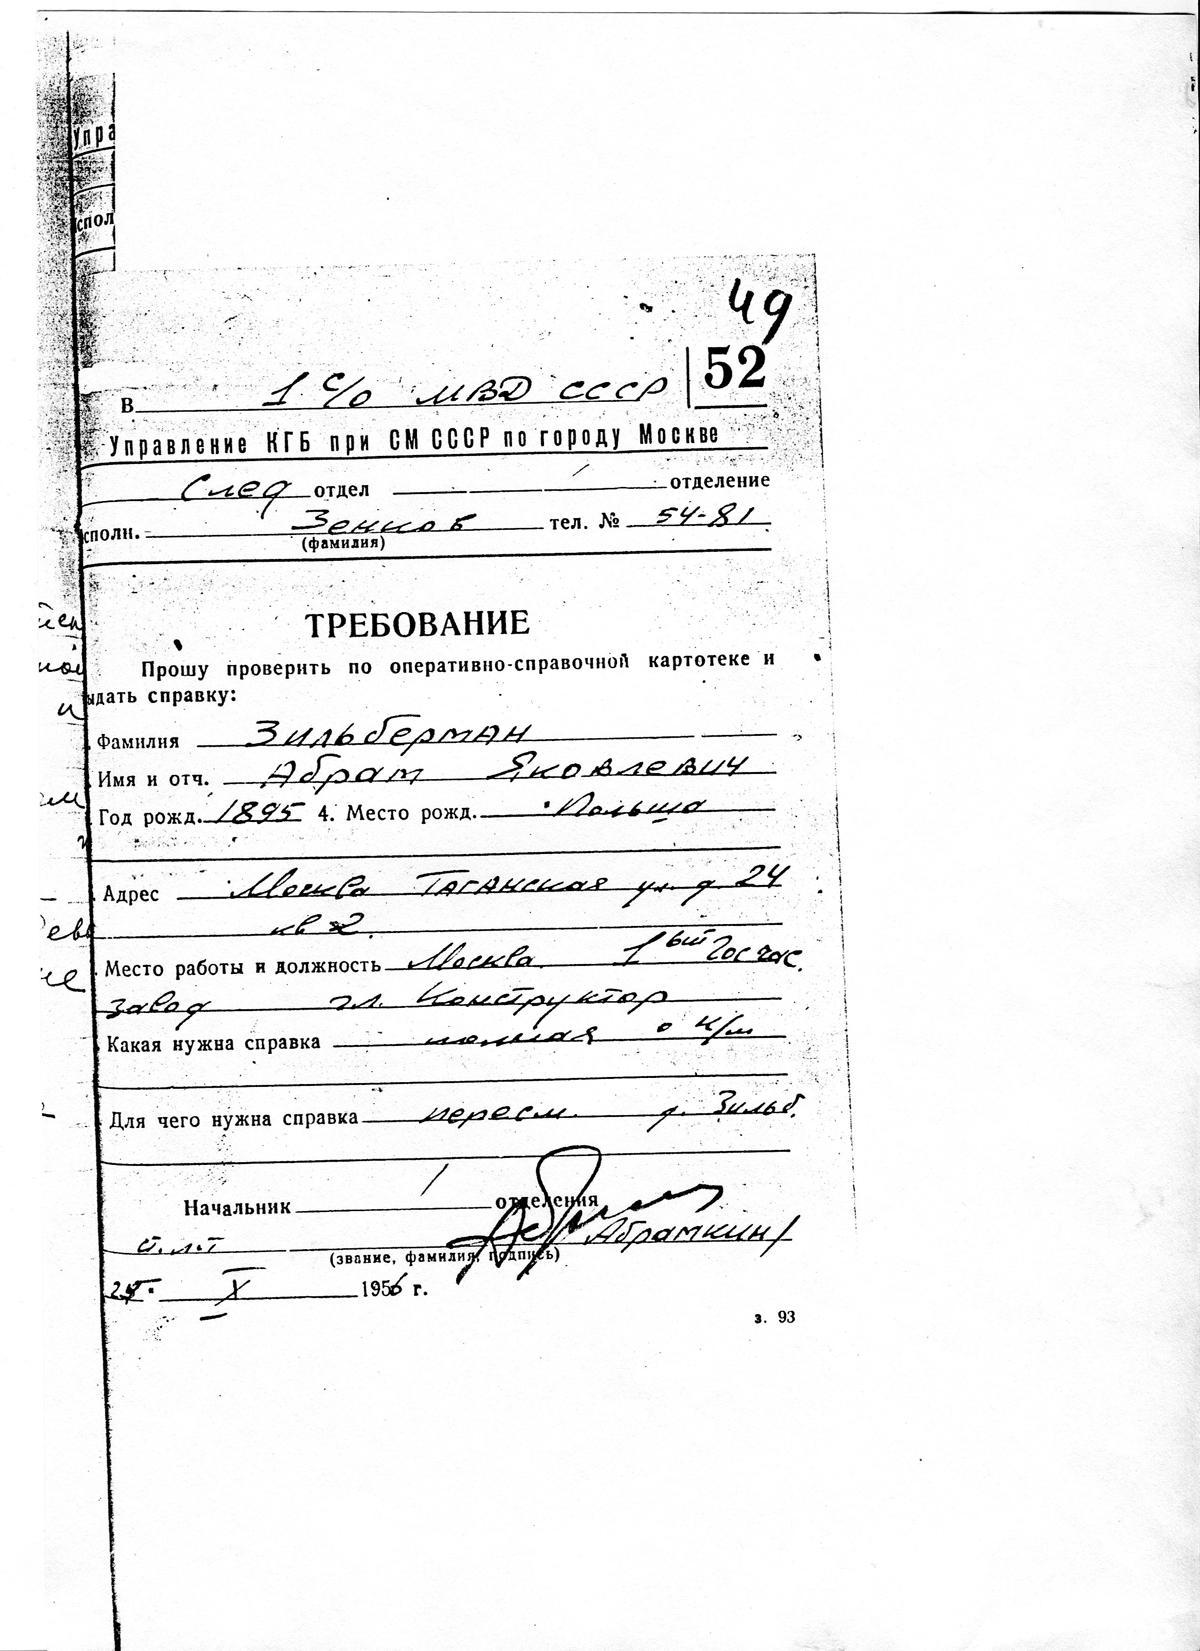 Упра
спол
49
52
В 1 с/о МВД СССР
Управление КГБ при СМ СССР по городу Москве
След отдел отделение
сполн. Зенков тел. № 54-81
(фамилия)
ТРЕБОВАНИЕ
Прошу проверить по оперативно-справочной картотеке и
ыдать справку:
Фамилия Зильберман
Имя и отч. Абрам Яковлевич
Год рожд. 1895 4. Место рожд. Польша
Адрес Москва Таганская ул. д 24
кв 2.
Место работы и должность Москва 1ый Гос час.
завод гл. Конструктор
Какая нужна справка полная о к/м
Для чего нужна справка пересм. д. Зильб.
Начальник отделения
Абрамкин
(звание, фамилия, подпись)
X 1956 г.
з. 93